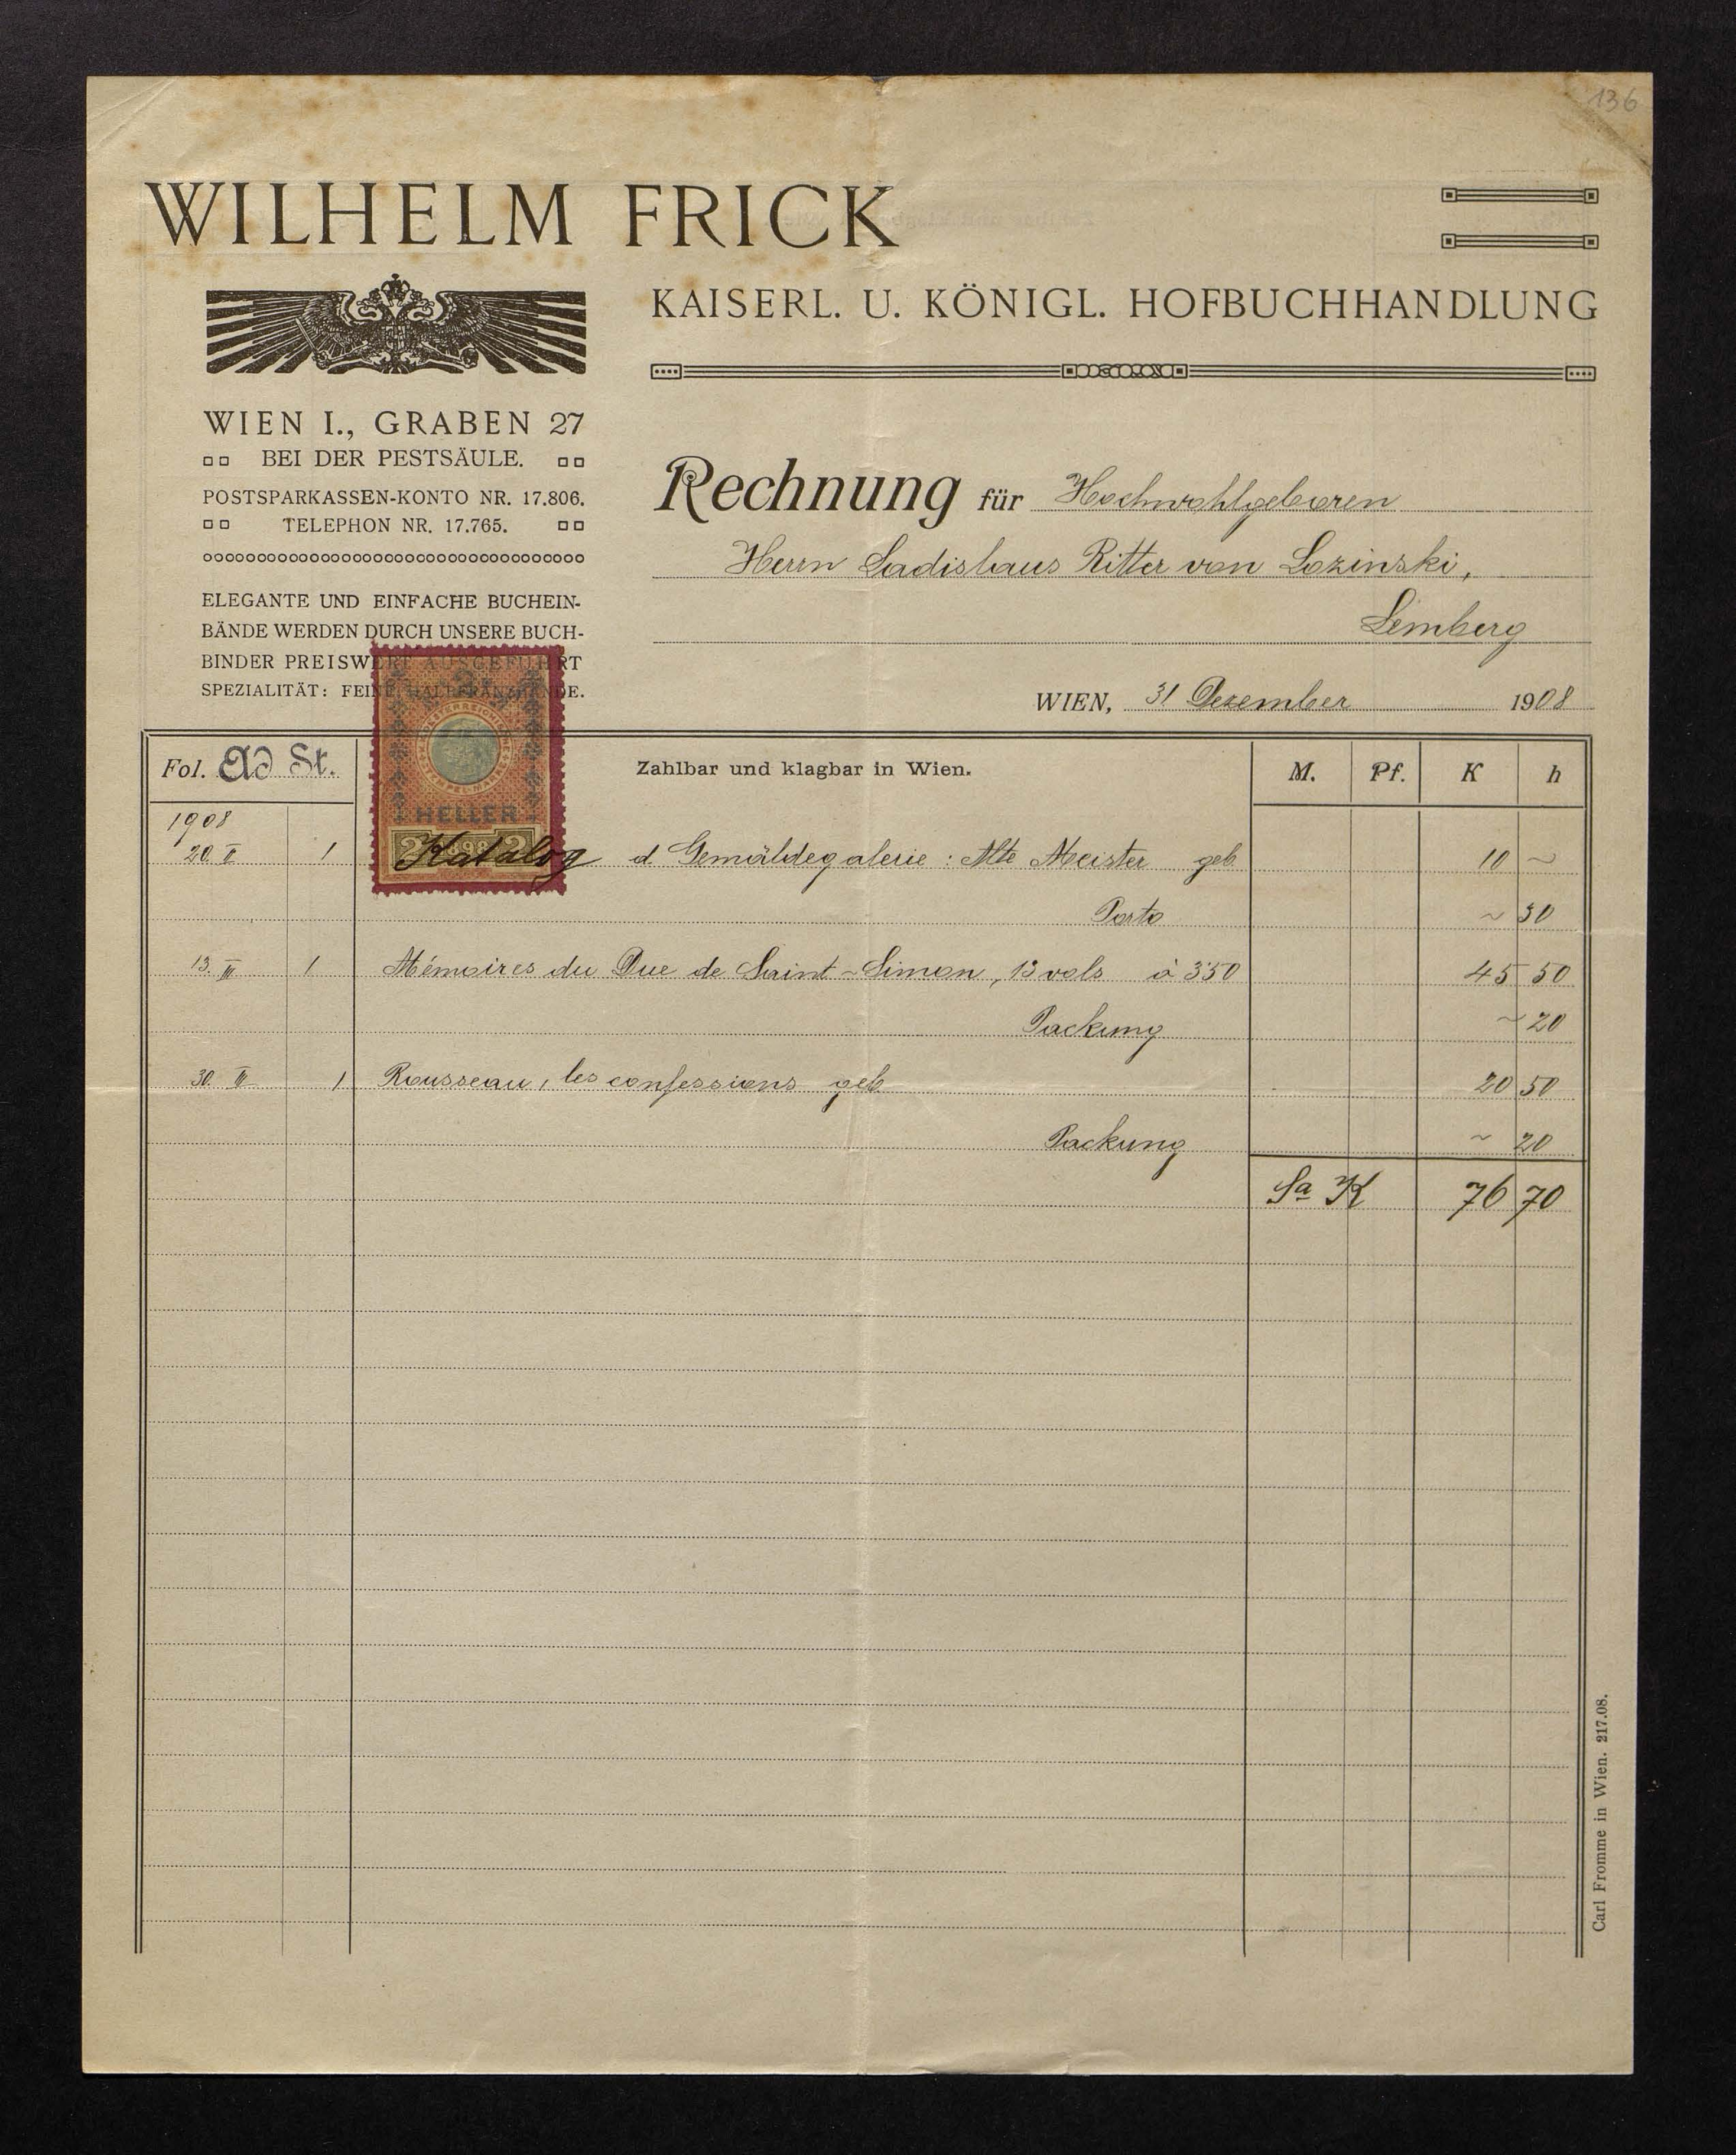 136
WILHELM FRICK
KAISERL. U. KÖNIGL. HOFBUCHHANDLUNG
WIEN I., GRABEN 27
BEI DER PESTSÄULE.
POSTSPARKASSEN-KONTO NR. 17.806.
TELEPHON NR. 17.765.
ELEGANTE UND EINFACHE BUCHEIN-
BÄNDE WERDEN DURCH UNSERE BUCH-
BINDER PREISWERT AUSGEFÜHRT
SPEZIALITÄT: FEINE HALBFRANZBÄNDE.
Rechnung für Hochwohlgeboren
Herrn Ladislaus Ritter von Lozinski,
Lemberg
WIEN, 31 Dezember 1908
Fol. Ad St. Zahlbar und klagbar in Wien. M. Pf. K h
HELLER
2 1898 2
1908
20. II 1 Katalog d Gemäldegalerie : Alte Meister geb 10 ~
Porto ~ 30
13. III 1 Mémoires du Duc de Saint-Simon, 13 vols à 3'50 45 50
Packung ~ 20
30. III 1 Rousseau, les confessions geb 20 50
Packung ~ 20
Sa K 76 70
Carl Fromme in Wien. 217.08.